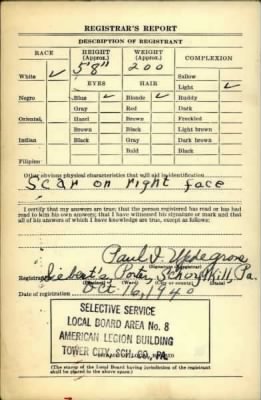 REGISTRAR'S REPORT
DESCRIPTION OF REGISTRANT
RACE HEIGHT (Approx.) WEIGHT (Approx.) COMPLEXION
5'8" 200
White ✓ Sallow
EYES HAIR Light ✓
Negro Blue ✓ Blonde ✓ Ruddy
Gray Red Dark
Oriental Hazel Brown Freckled
Brown Black Light brown
Indian Black Gray Dark brown
Bald Black
Filipino
Other obvious physical characteristics that will aid identification
Scar on right face
I certify that my answers are true; that the person registered has read or has had
read to him his own answers; that I have witnessed his signature or mark and that
all of his answers of which I have knowledge are true, except as follows:
Paul I. Updegrove
Registrar
Porter, Schuylkill, Pa.
(Precinct) (Ward) (City or county)
Date of registration Oct 16, 1940
SELECTIVE SERVICE
LOCAL BOARD AREA No. 8
AMERICAN LEGION BUILDING
TOWER CITY, SCH. CO., PA.
(The stamp of the Local Board having jurisdiction of the registrant
shall be placed in the above space.)